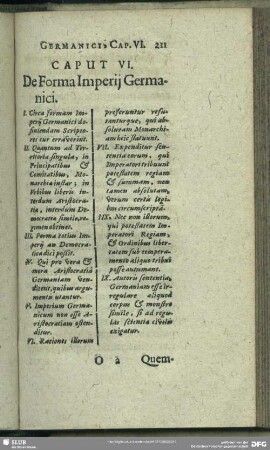 GERMANICI. CAP. VI. 211
CAPUT VI.
De Forma Imperij Germa-
nici.
I. Circa formam Im-
perij Germanici de-
finiendam Scripto-
res cur erraverint.
II. Quantum ad Ter-
ritoria singula, in
Principatibus &
Comitatibus, Mo-
narchia instar; in
Urbibus liberis in-
terdum Aristocra-
tia, interdum De-
mocratia simile, re-
gimen obtinet.
III. Forma totius Im-
perij an Democra-
tica dici possit.
IV. Qui pro vera &
mera Aristocratiâ
Germaniam ven-
ditent, quibus argu-
mentis utantur.
V. Imperium Germa-
nicum non esse A-
ristocratiam osten-
ditur.
VI. Rationes illorum
proferuntur refu-
tanturque, qui ab-
solutam Monarchi-
am heic statuunt.
VII. Expenditur sen-
tentia eorum, qui
Imperatori tribuunt
potestatem regiam
& summam, non
tamen absolutam,
verum certis legi-
bus circumscriptã.
Nec non illorum,
qui potestatem Im-
peratoris Regiam,
& Ordinibus liber-
tatem sub tempera-
mento aliquo tribui
posse autumant.
IX. Autoris sententia,
Germaniam esse ir-
regulare aliquod
corpus & monstro
simile, si ad regu-
las scientiæ civilis
exigatur.
O 2 Quem-
SLUB
DFG